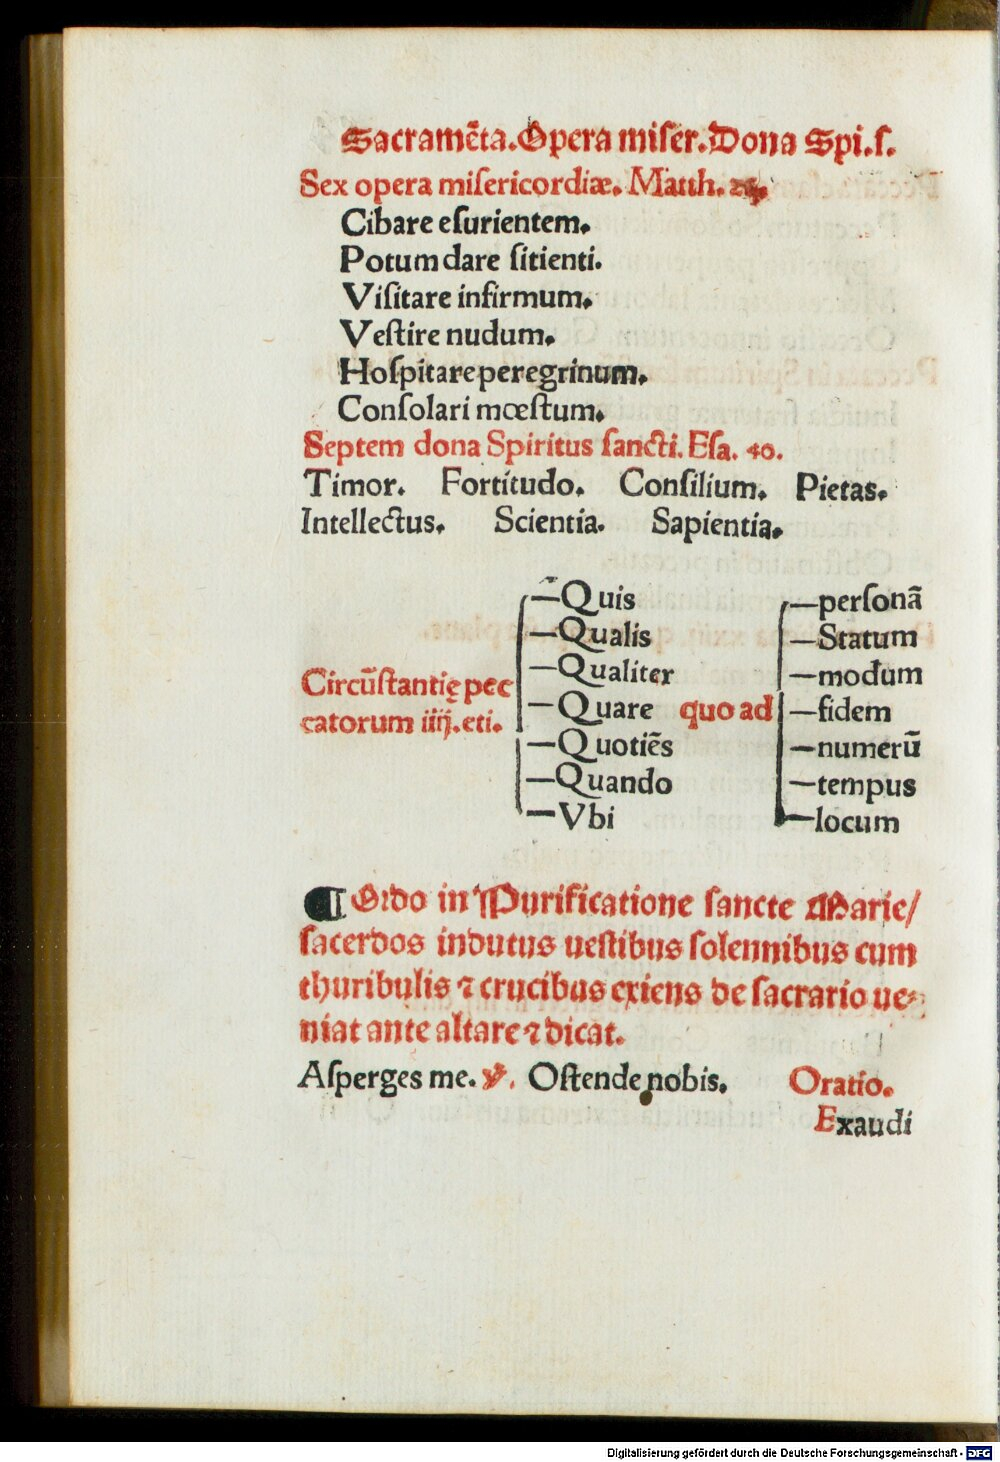 Sacramēta. Opera miſer. Dona Spi. ſ.
Sex opera miſericordiæ. Matth.
Cibare eſurientem.
Potum dare ſitienti.
Viſitare infirmum.
Veſtire nudum.
Hoſpitare peregrinum.
Conſolari mœſtum.
Septem dona Spiritus ſancti. Eſa. 40.
Timor. Fortitudo. Conſilium. Pietas.
Intellectus. Scientia. Sapientia.
Circūſtantię pec
catorum iiij. eti.
—Quis
—Qualis
—Qualiter
—Quare
—Quotiēs
—Quando
—Vbi
quo ad
—perſonā
—Statum
—modum
—fidem
—numerū
—tempus
—locum
¶ Ordo in Purificatione ſancte Marie/
ſacerdos indutus ueſtibus ſolennibus cum
thuribulis ⁊ crucibus exiens de ſacrario ue⸗
niat ante altare ⁊ dicat.
Aſperges me. ℣. Oſtende nobis. Oratio.
Exaudi
Digitalisierung gefördert durch die Deutsche Forschungsgemeinschaft - DFG